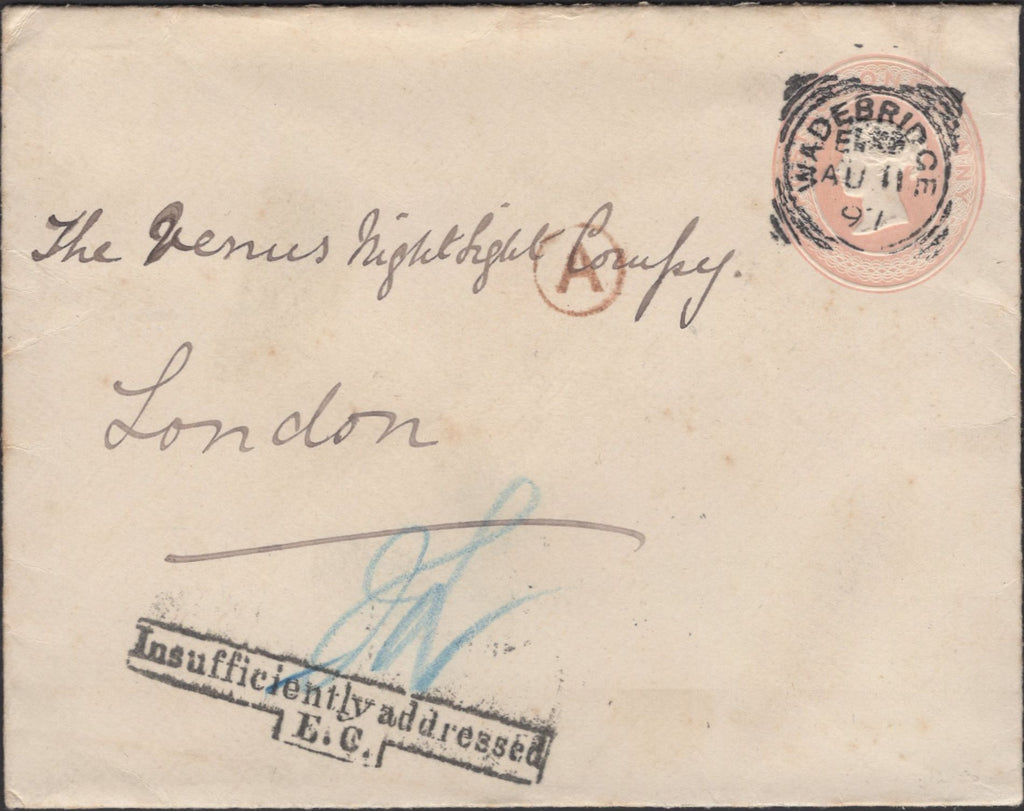 WADEBRIDGE
AU 11
97
The Venus Nightlight Compy.
A
London
Insufficiently addressed
E.C.